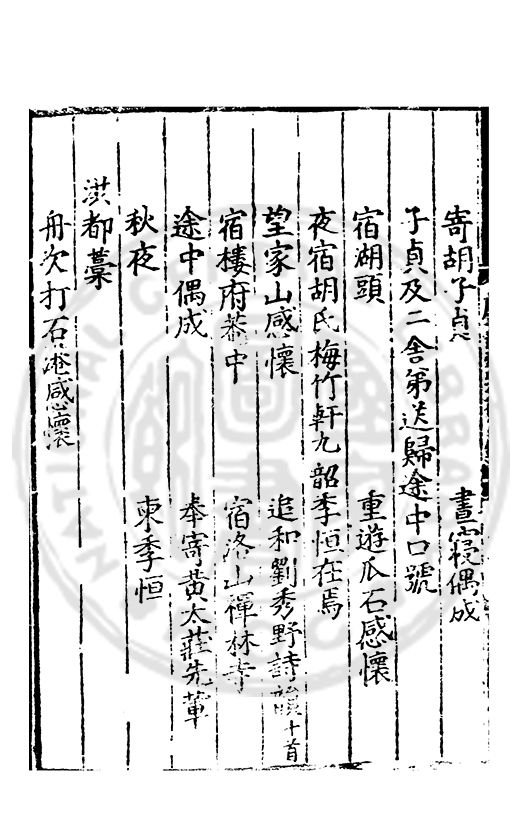 寄胡子貞　晝寢偶成
子貞及二舍弟送歸途中口號
宿湖頭　重遊瓜石感懷
夜宿胡氏梅竹軒九韶季恒在焉
望家山感懷　追和劉秀野詩韻十首
宿樓府菴中　宿洛山禪林寺
途中偶成　奉寄黃太莊先輩
秋夜　柬季恒
洪都藁
舟次打石港感懷